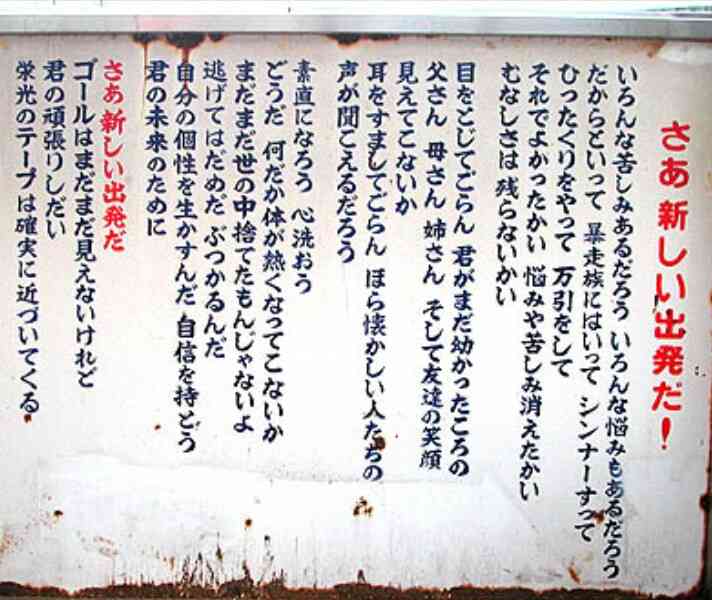 さあ新しい出発だ！
いろんな苦しみあるだろう いろんな悩みもあるだろう
だからといって 暴走族にはいって シンナーすって
ひったくりをやって 万引をして
それでよかったかい 悩みや苦しみ消えたかい
むなしさは 残らないかい
目をとじてごらん 君がまだ幼かったころの
父さん 母さん 姉さん そして友達の笑顔
見えてこないか
耳をすましてごらん ほら懐かしい人たちの
声が聞こえるだろう
素直になろう 心洗おう
どうだ 何だか体が熱くなってこないか
まだまだ世の中捨てたもんじゃないよ
逃げてはだめだ ぶつかるんだ
自分の個性を生かすんだ 自信を持とう
君の未来のために
さあ新しい出発だ
ゴールはまだまだ見えないけれど
君の頑張りしだい
栄光のテープは確実に近づいてくる